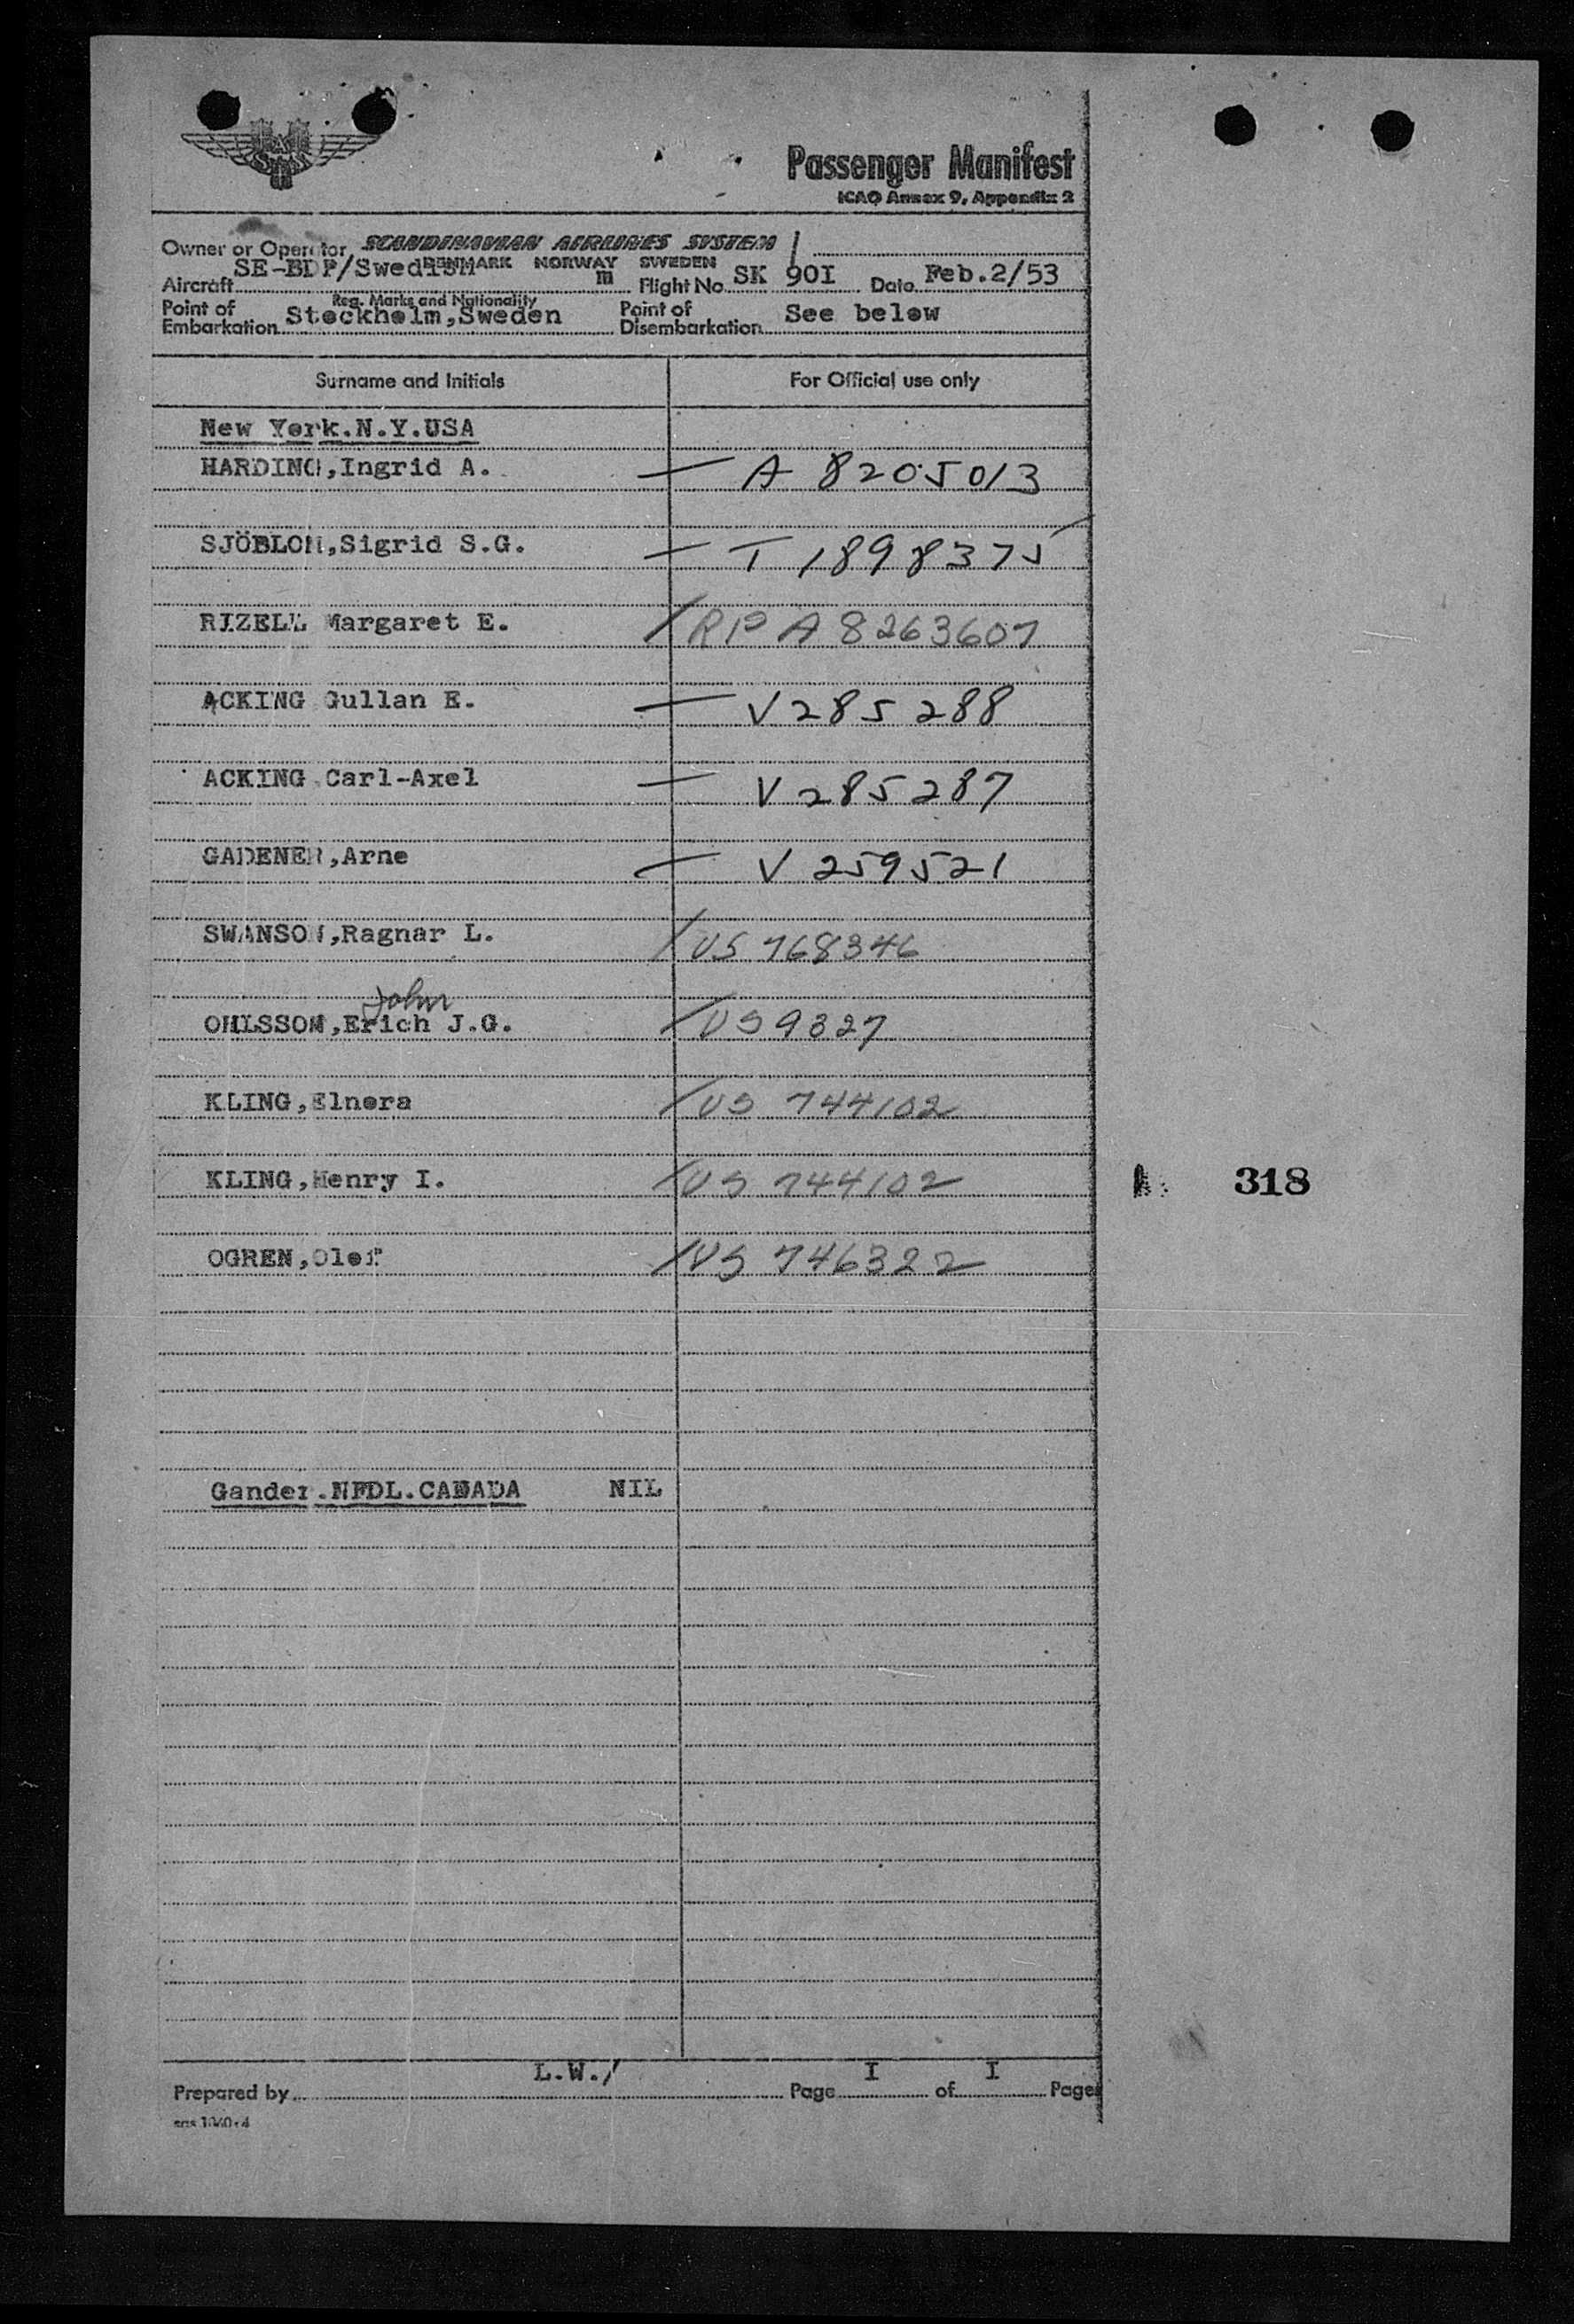 SAS
Passenger Manifest
ICAO Annex 9, Appendix 2
Owner or Operator SCANDINAVIAN AIRLINES SYSTEM
DENMARK NORWAY SWEDEN
Aircraft SE-BDP/Swedish m Flight No SK 90I Date Feb.2/53
Reg. Marks and Nationality
Point of Embarkation Stockholm,Sweden Point of Disembarkation See below
Surname and Initials For Official use only
New York.N.Y.USA
HARDING,Ingrid A. A 8205013
SJÖBLOM,Sigrid S.G. T 1898375
RIZELL Margaret E. RP A 8263607
ACKING Gullan E. V 285288
ACKING Carl-Axel V 285287
GADENER,Arne V 259521
SWANSON,Ragnar L. US 768346
John
OHLSSON,Erich J.G. US 9327
KLING,Elnora US 744102
KLING,Henry I. US 744102
318
OGREN,Olof US 746322
Gander.NFDL.CANADA NIL
Prepared by L.W./ Page I of I Pages